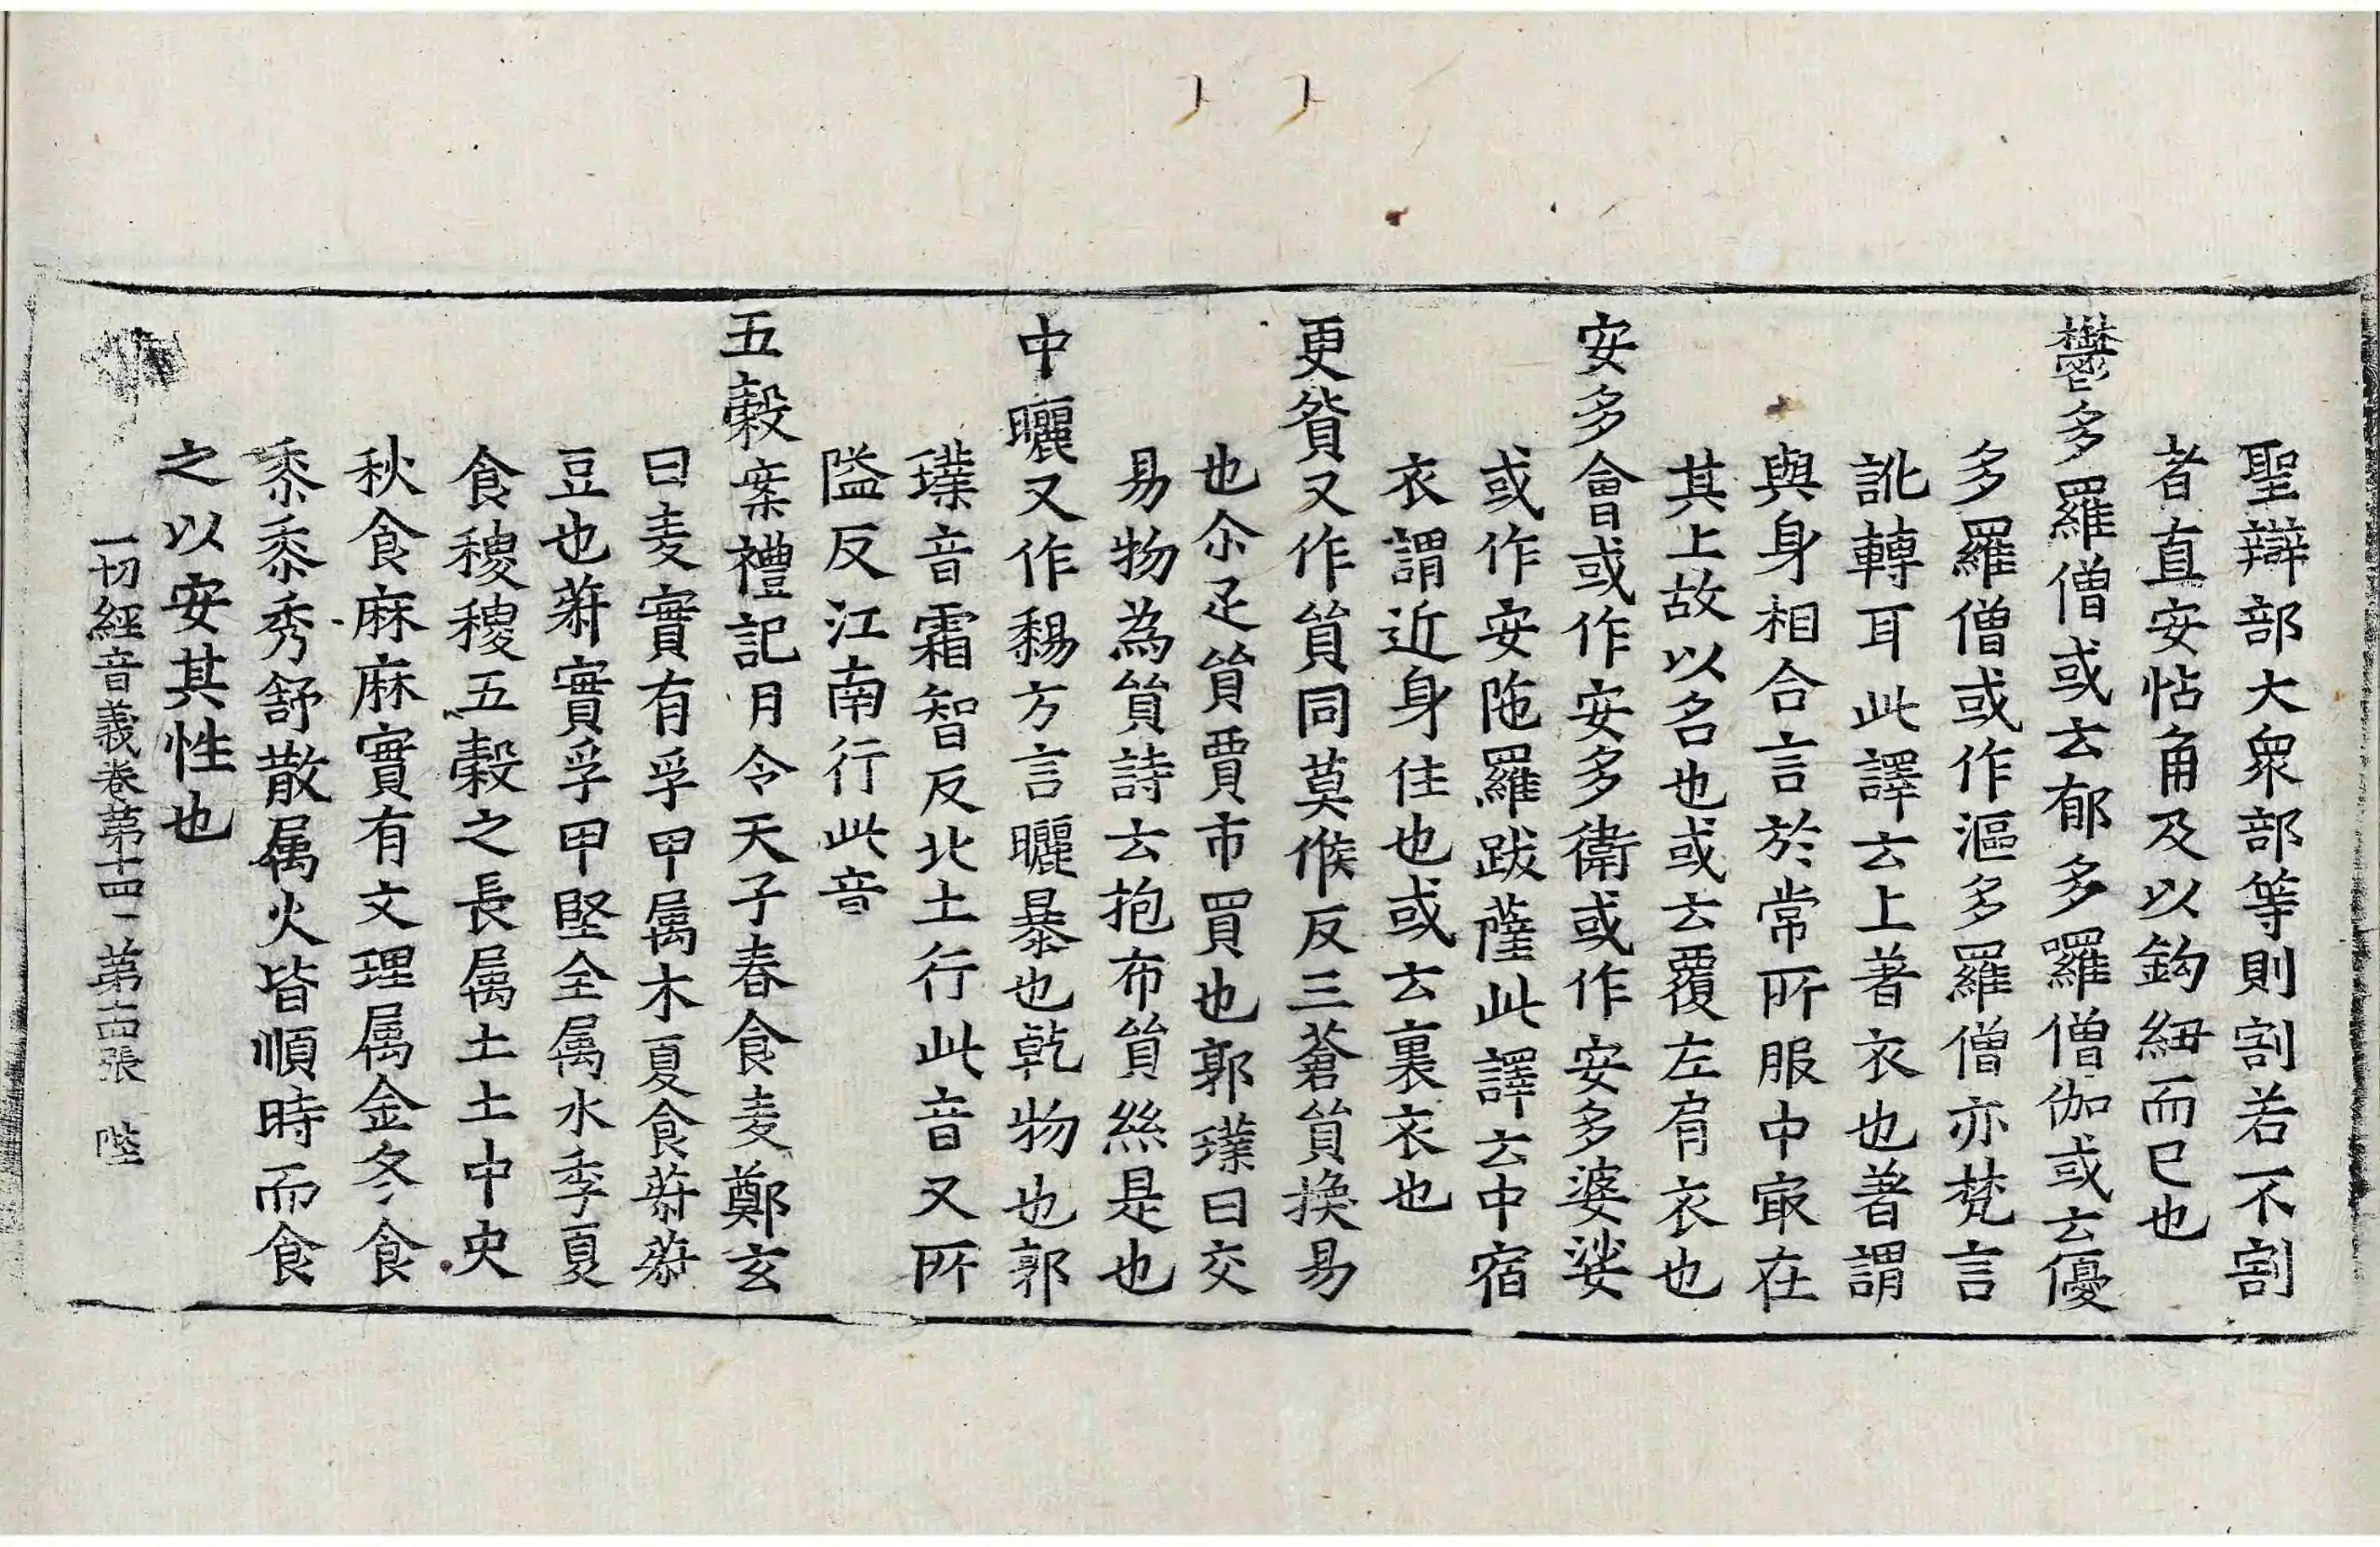 聖辯部大衆部等則割若不割
者直安怗角及以鈎紐而已也
欝多羅僧或云郁多囉僧伽或云優
多羅僧或作漚多羅僧亦梵言
訛轉耳此譯云上著衣也著謂
與身相合言於常所服中㝡在
其上故以名也或云覆左肩衣也
安多會或作安多衛或作安多婆娑
或作安陁羅跋薩此譯云中宿
衣謂近身住也或云裏衣也
更貿又作貿同莫候反三蒼貿換易
也尒疋貿賈市買也郭璞曰交
易物為貿詩云抱布貿絲是也
中曬又作㬠方言曬暴也乾物也郭
璞音霜智反北土行此音又所
隘反江南行此音
五糓案禮記月令天子春食麦鄭玄
曰麦實有孚甲属木夏食菽菽
豆也菽實孚甲堅全属水季夏
食稷稷五糓之長属土土中央
秋食麻麻實有文理属金冬食
黍黍秀舒散属火皆順時而食
之以安其性也
一切經音義卷第十四 第十四張 陛